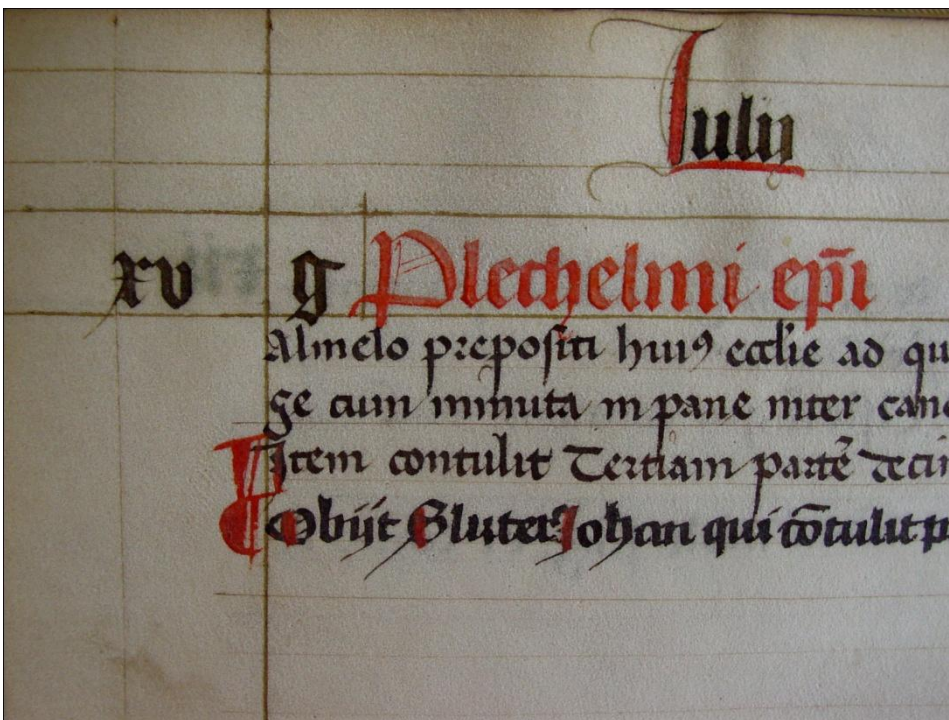 Iulij
xv g Plechelmi ep̄i
Almelo prepositi huiꝰ eccl̄ie ad qu
ge cum minuta in pane inter cano
Item contulit Terciam partē deci
Obijt Sluter Johan qui cōtulit p